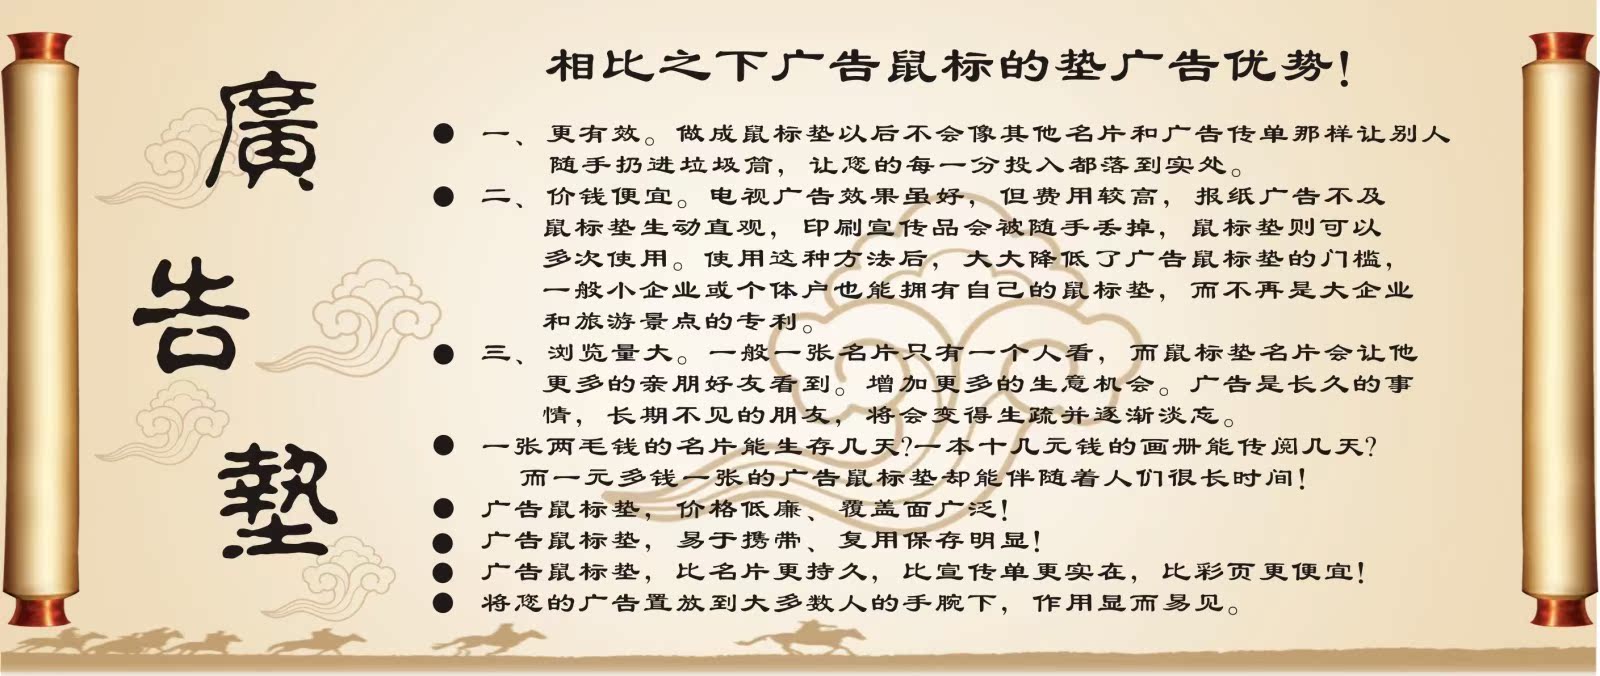 廣
告
墊
相比之下广告鼠标的垫广告优势!
● 一、更有效。做成鼠标垫以后不会像其他名片和广告传单那样让别人
随手扔进垃圾筒，让您的每一分投入都落到实处。
● 二、价钱便宜。电视广告效果虽好，但费用较高，报纸广告不及
鼠标垫生动直观，印刷宣传品会被随手丢掉，鼠标垫则可以
多次使用。使用这种方法后，大大降低了广告鼠标垫的门槛，
一般小企业或个体户也能拥有自己的鼠标垫，而不再是大企业
和旅游景点的专利。
● 三、浏览量大。一般一张名片只有一个人看，而鼠标垫名片会让他
更多的亲朋好友看到。增加更多的生意机会。广告是长久的事
情，长期不见的朋友，将会变得生疏并逐渐淡忘。
● 一张两毛钱的名片能生存几天?一本十几元钱的画册能传阅几天?
而一元多钱一张的广告鼠标垫却能伴随着人们很长时间!
● 广告鼠标垫，价格低廉、覆盖面广泛!
● 广告鼠标垫，易于携带、复用保存明显!
● 广告鼠标垫，比名片更持久，比宣传单更实在，比彩页更便宜!
● 将您的广告置放到大多数人的手腕下，作用显而易见。